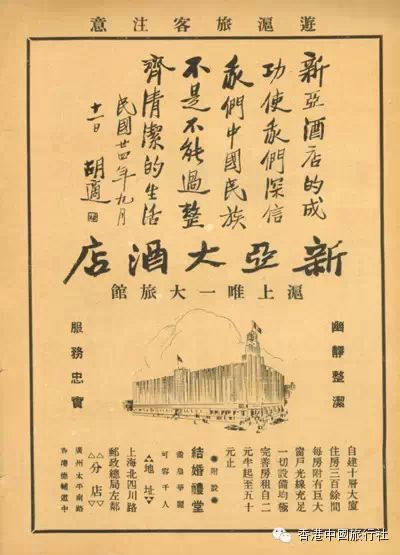 遊滬旅客注意
新亞酒店的成
功使我們深信
我們中國民族
不是不能過整
齊清潔的生活
民國廿四年九月
十一日 胡適
新亞大酒店
滬上唯一大旅館
幽靜整潔
服務忠實
自建十層大廈
住房三百餘間
每房附有巨大
窗戶光線充足
一切設備均極
完善房租自二
元半起至五十
元止
附設
結婚禮堂
喬皇華麗
可容千人
地址
上海北四川路
郵政總局左鄰
分店
廣州太平南路
香港德輔道中
香港中國旅行社